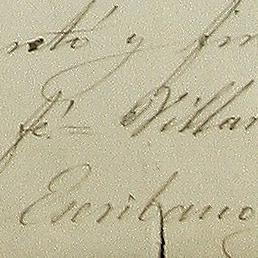 retó y fir
fé = Villar
Escribano